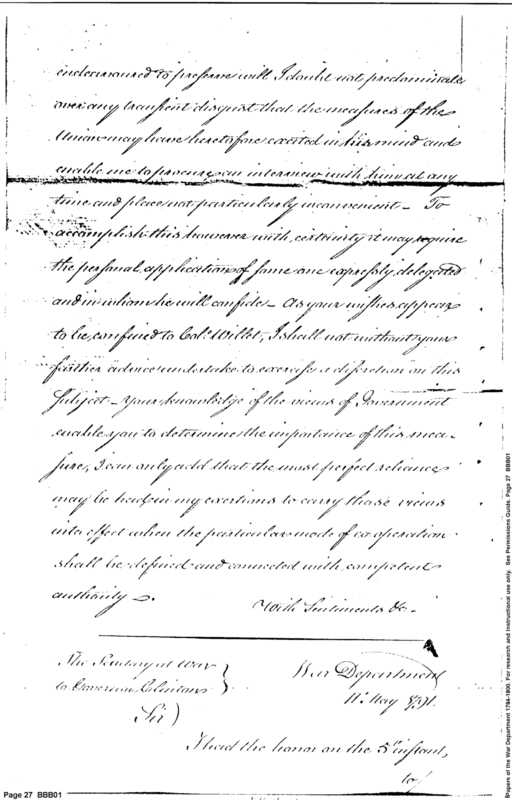 endeavoured to preserve will I doubt not predominate
over any transient disgust that the measures of the
Union may have heretofore excited in his mind and
enable me to procure an interview with him at any
time and place not particularly inconvenient – To
accomplish this however with certainty it may require
the personal application of some one expressly delegated
and in whom he will confide – As your wishes appear
to be confined to Col. Willet, I shall not without your
farther advice undertake to exercise a discretion on this
subject – Your knowledge of the views of Government
enable you to determine the importance of this mea-
sure, I can only add that the most perfect reliance
may be had in my exertions to carry those views
into effect when the particular mode of co operation
shall be defined and connected with competent
authority –.
With Sentiments &c –
The Secretary at War
to Governor Clinton
War Department
11th May 1791.
Sir)
I had the honor on the 5th instant,
to/
Page 27 BBB01
Papers of the War Department 1784-1800. For research and instructional use only. See Permissions Guide. Page 27 BBB01